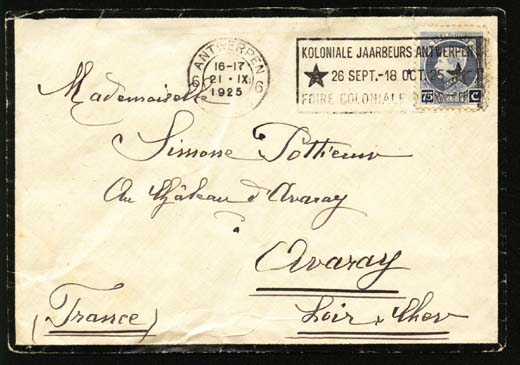 ANTWERPEN
16-17
6 21 · IX 6
1925
KOLONIALE JAARBEURS ANTWERPEN
26 SEPT.-18 OCT. 25
FOIRE COLONIALE
75 C
Mademoiselle
Simone
Au Château d'Avaray
Avaray
(France)
Loir & Cher